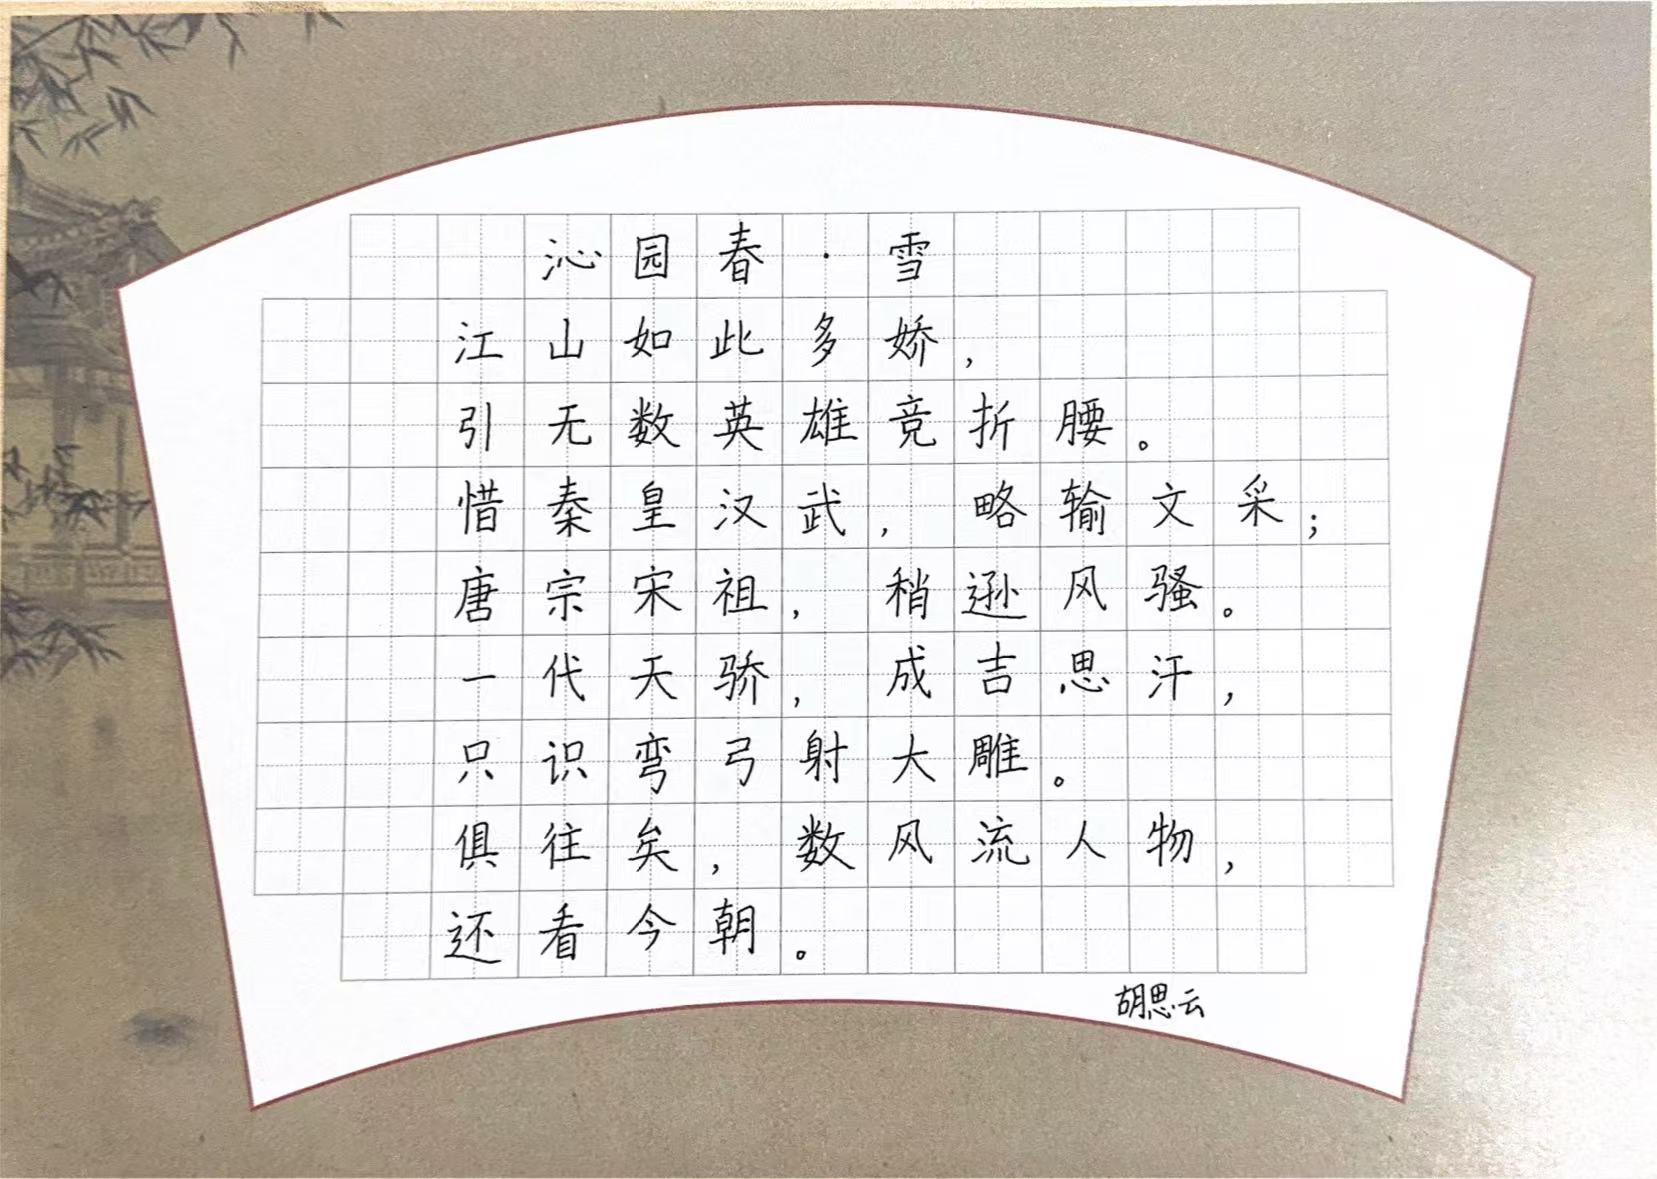 沁园春·雪
江山如此多娇，
引无数英雄竞折腰。
惜秦皇汉武，略输文采；
唐宗宋祖，稍逊风骚。
一代天骄，成吉思汗，
只识弯弓射大雕。
俱往矣，数风流人物，
还看今朝。
胡思云